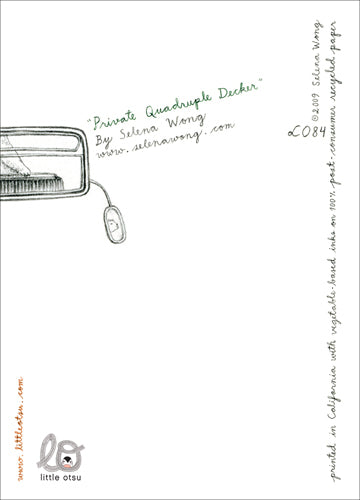 "Private Quadruple Decker"
By Selena Wong
www.selenawong.com
©2009 Selena Wong
LO84
printed in California with vegetable-based inks on 100% post-consumer recycled paper
www.littleotsu.com
lo
little otsu